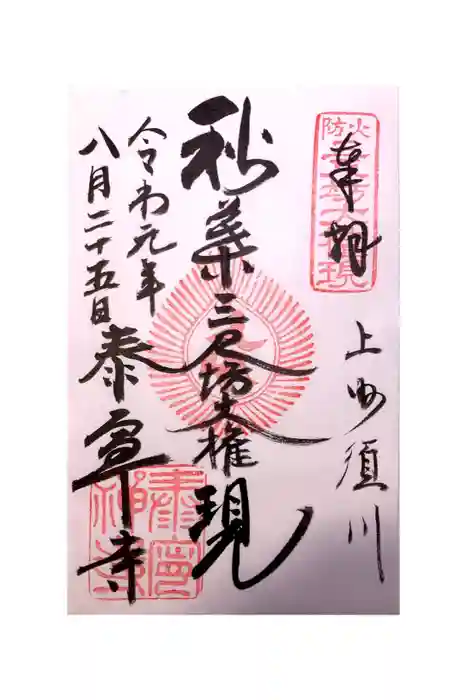 火防
奉拝
大権現
上州須川
秋葉三尺坊大権現
令和元年
八月二十五日
泰寧寺